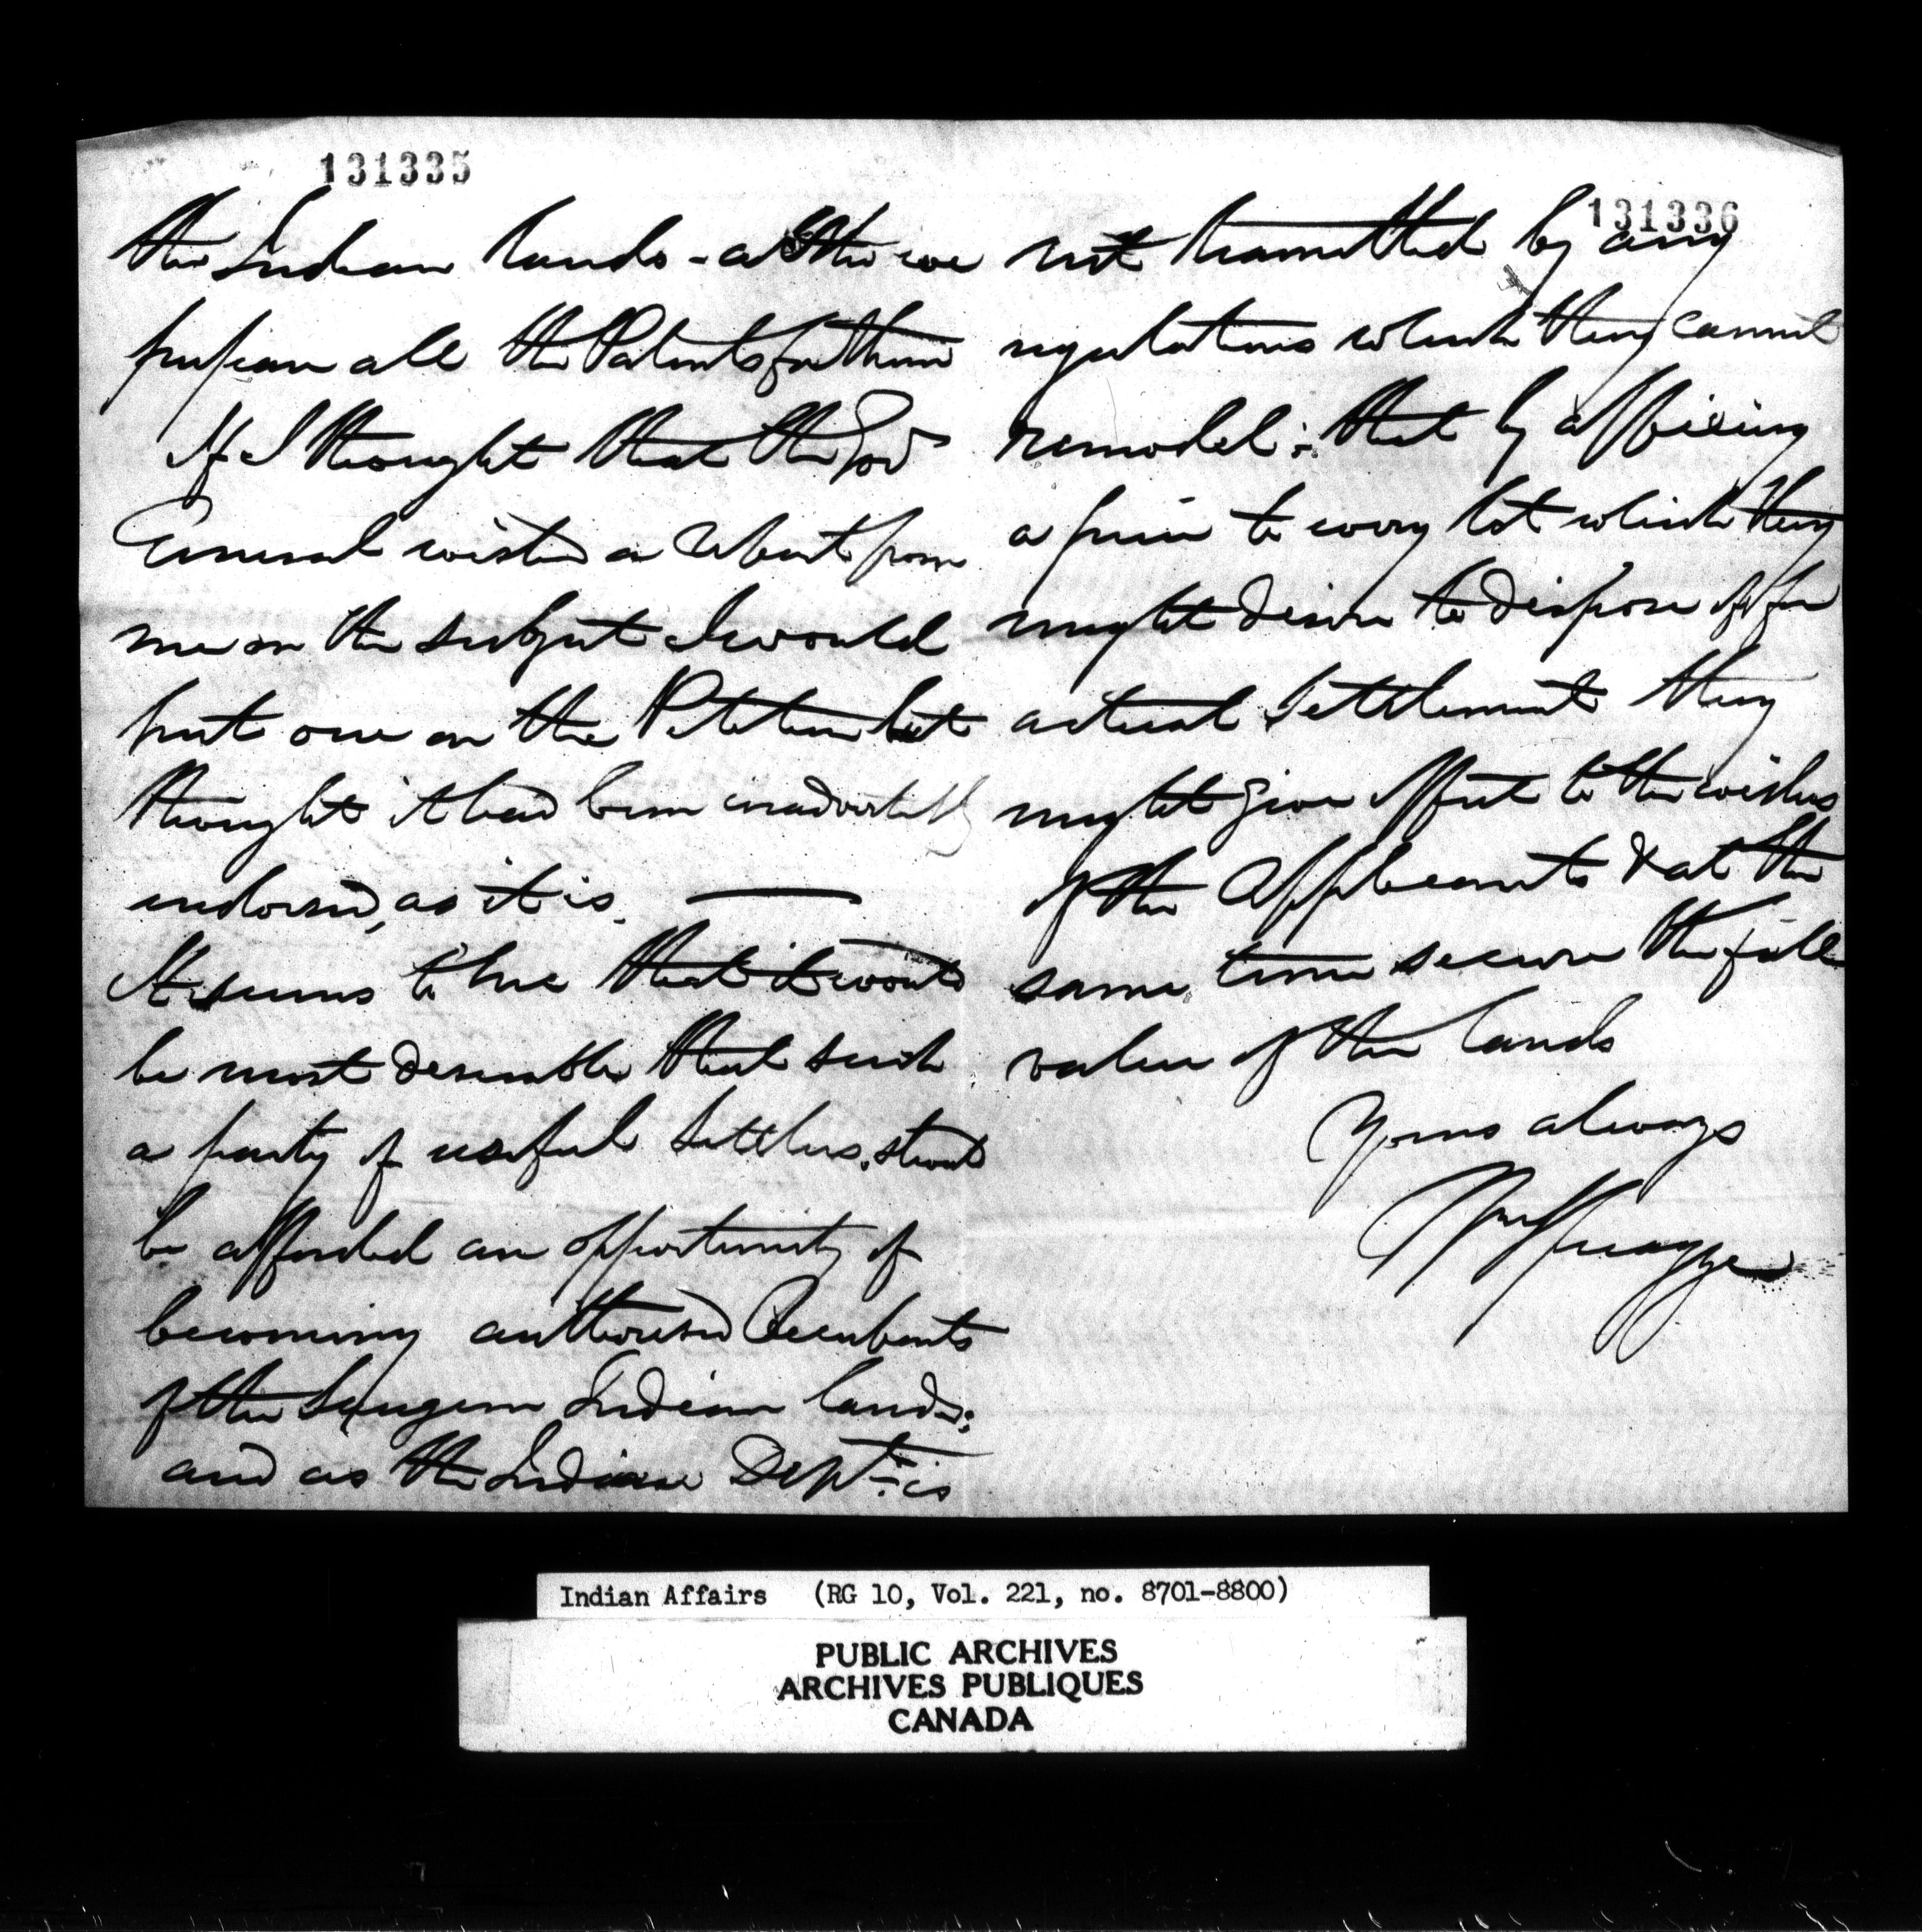 131335
the Indian lands - altho we
prepare all the Patents for them
If I thought that the Gov
General wished a Report from
me on the subject I would
put one on the Petition but
thought it had been inadvertently
endorsed, as it is.
It seems to me that it would
be most desirable that such
a party of useful Settlers, should
be afforded an opportunity of
becoming authorised Occupants
of the Saugeen Indian lands;
and as the Indian Dept. is
131336
not tramelled by any
regulations which they cannot
remodel; that by affixing
a price to every lot which they
might desire to dispose of for
actual Settlement they
might give effect to the wishes
of the Applicants & at the
same time secure the full
value of the lands
Yours always
Indian Affairs (RG 10, Vol. 221, no. 8701-8800)
PUBLIC ARCHIVES
ARCHIVES PUBLIQUES
CANADA